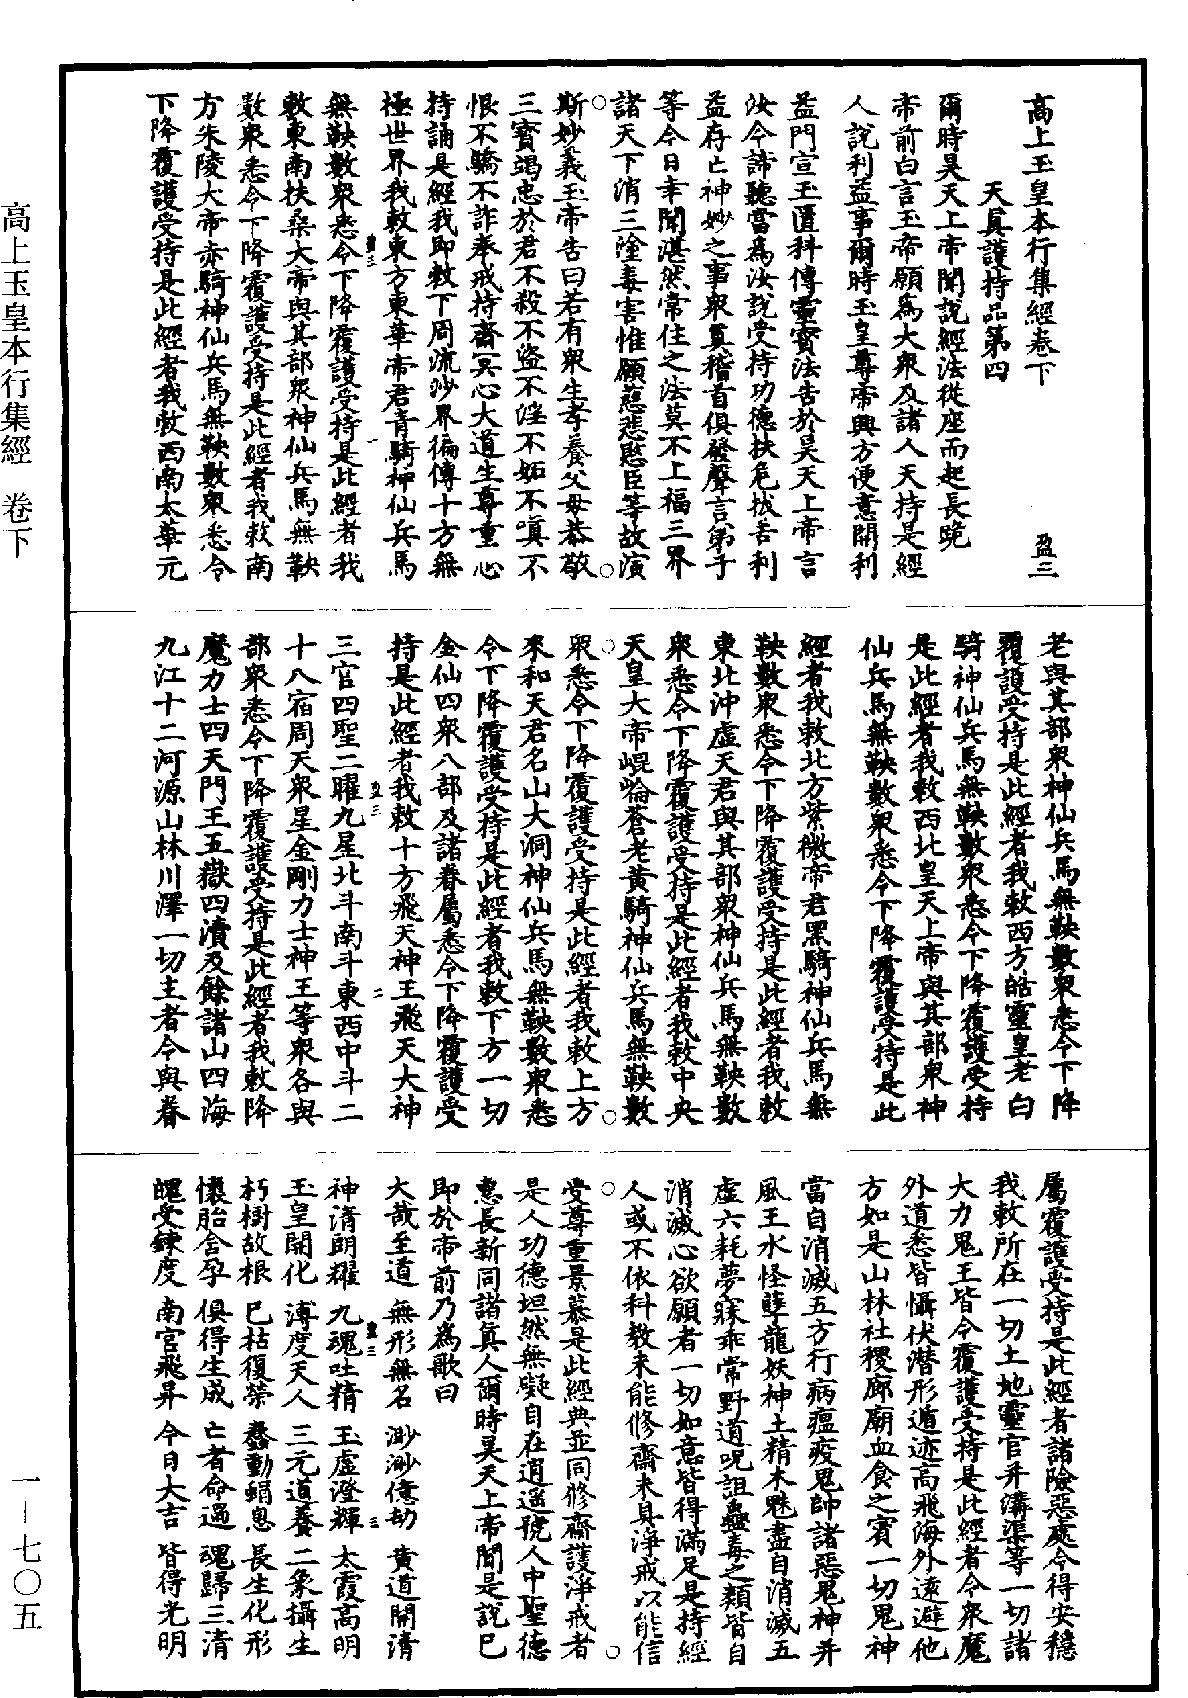 高上玉皇本行集經卷下　　盈三
天真護持品第四
爾時昊天上帝聞說經法從座而起長跪
帝前白言玉帝願為大眾及諸人天持是經
人說利益事爾時玉皇尊帝興方便意開利
益門宣玉匱科傳靈寶法告於昊天上帝言
汝今諦聽當為汝說受持功德扶危拔苦利
益存亡神妙之事眾真稽首俱發聲言弟子
等今日幸聞湛然常住之法莫不上福三界
諸天下消三塗毒害惟願慈悲愍臣等故演
斯妙義玉帝告曰若有眾生孝養父母恭敬
三寶竭忠於君不殺不盜不淫不妬不嗔不
恨不驕不詐奉戒持齋冥心大道生尊重心
持誦是經我即敕下周流沙界徧傳十方無
極世界我敕東方東華帝君青騎神仙兵馬
無鞅數眾悉令下降覆護受持是此經者我
敕東南扶桑大帝與其部眾神仙兵馬無鞅
數眾悉令下降覆護受持是此經者我敕南
方朱陵大帝赤騎神仙兵馬無鞅數眾悉令
下降覆護受持是此經者我敕西南太華元
老與其部眾神仙兵馬無鞅數眾悉令下降
覆護受持是此經者我敕西方皓靈皇老白
騎神仙兵馬無鞅數眾悉令下降覆護受持
是此經者我敕西北皇天上帝與其部眾神
仙兵馬無鞅數眾悉令下降覆護受持是此
經者我敕北方紫微帝君黑騎神仙兵馬無
鞅數眾悉令下降覆護受持是此經者我敕
東北沖虛天君與其部眾神仙兵馬無鞅數
眾悉令下降覆護受持是此經者我敕中央
天皇大帝崐崘蒼老黃騎神仙兵馬無鞅數
眾悉令下降覆護受持是此經者我敕上方
來和天君名山大洞神仙兵馬無鞅數眾悉
令下降覆護受持是此經者我敕下方一切
金仙四眾八部及諸眷屬悉令下降覆護受
持是此經者我敕十方飛天神王飛天大神
三官四聖二曜九星北斗南斗東西中斗二
十八宿周天眾星金剛力士神王等眾各與
部眾悉令下降覆護受持是此經者我敕降
魔力士四天門王五嶽四瀆及餘諸山四海
九江十二河源山林川澤一切主者令與眷
屬覆護受持是此經者諸險惡處令得安穩
我敕所在一切土地靈官并溝渠等一切諸
大力鬼王皆令覆護受持是此經者令眾魔
外道悉皆懾伏潛形遁迹高飛海外遠避他
方如是山林社稷廊廟血食之賓一切鬼神
當自消滅五方行病瘟疫鬼帥諸惡鬼神并
風王水怪孽龍妖神土精木魅盡自消滅五
虛六耗夢寐乖常野道呪詛蠱毒之類皆自
消滅心欲願者一切如意皆得滿足是持經
人或不依科教未能修齋未具淨戒以能信
受尊重景慕是此經典並同修齋護淨戒者
是人功德坦然無礙自在逍遙號人中聖德
惠長新同諸真人爾時昊天上帝聞是說已
即於帝前乃為歌曰
大哉至道　無形無名　渺渺億劫　黃道開清
神清朗耀　九魂吐精　玉虛澄輝　太霞高明
玉皇開化　溥度天人　三元道養　二象攝生
朽樹故根　已枯復榮　蠢動蜎息　長生化形
懷胎含孕　俱得生成　亡者命過　魂歸三清
魄受鍊度　南宮飛昇　今日大吉　皆得光明
高上玉皇本行集經　卷下
一—七〇五